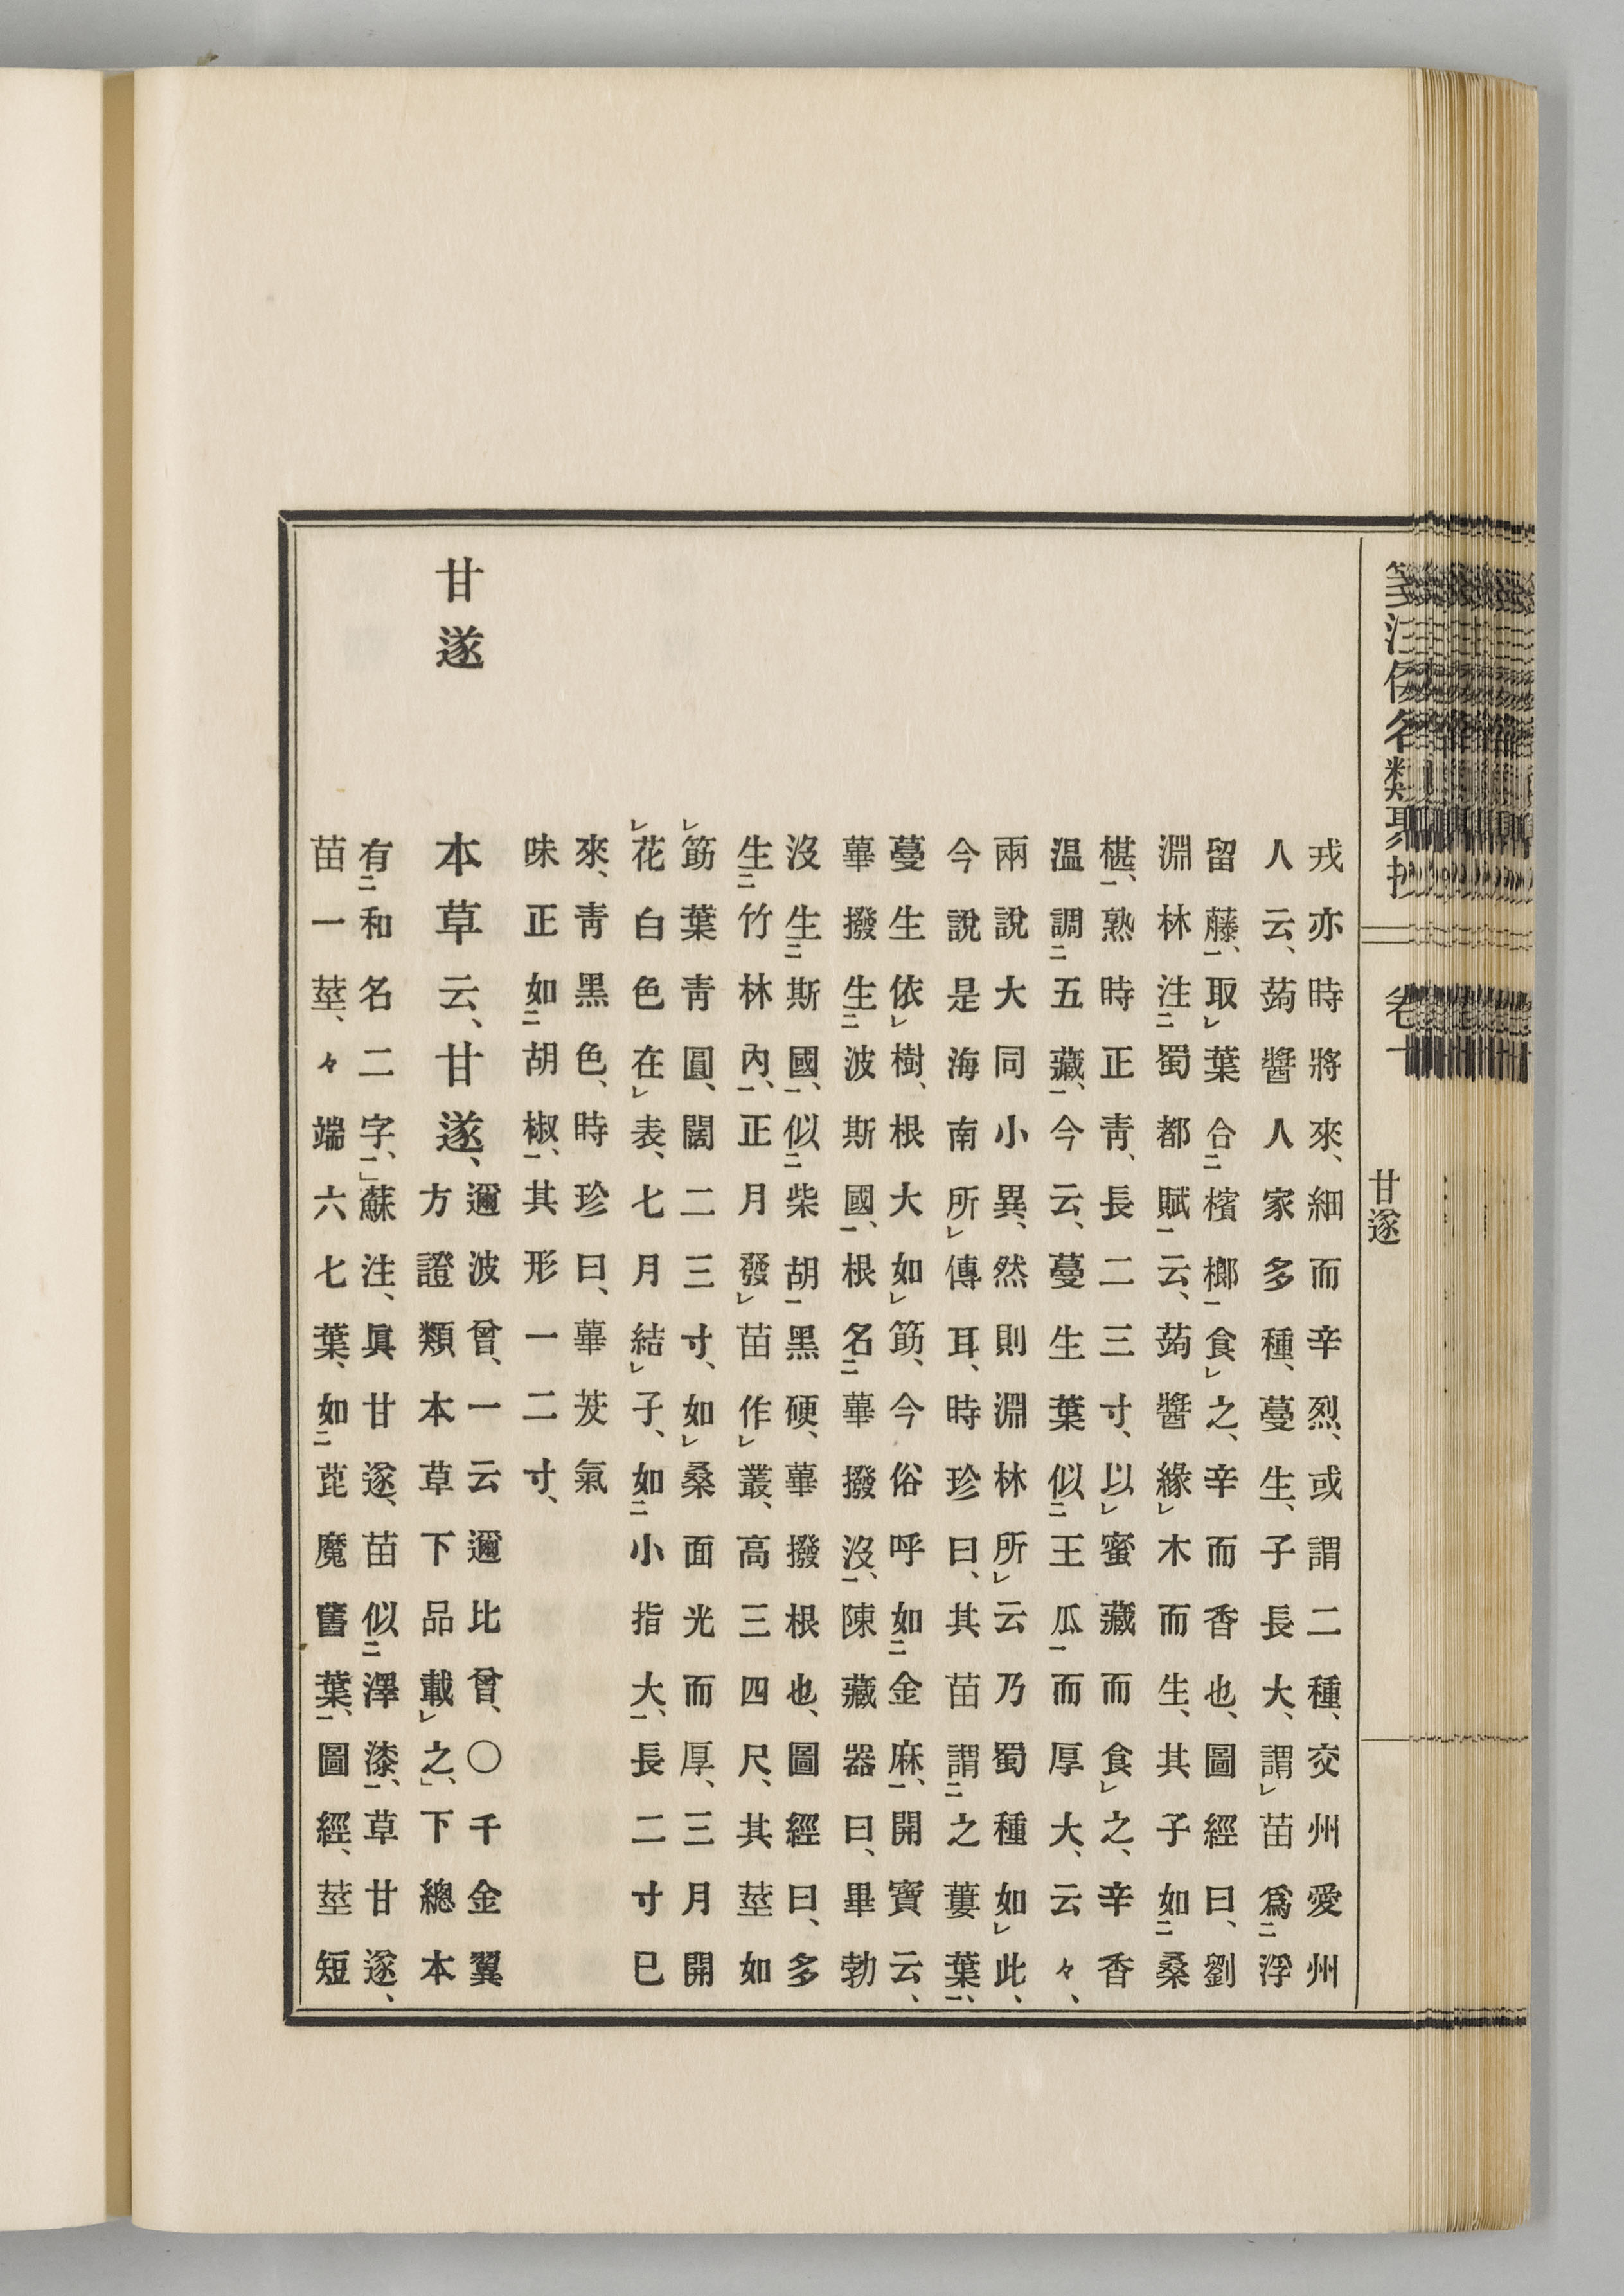 箋注倭名類聚抄 卷十 甘遂
戎亦時將來、細而辛烈、或謂二種、交州愛州
人云、蒟醬人家多種、蔓生、子長大、謂苗爲浮
留藤、取葉合檳榔食之、辛而香也、圖經曰、劉
淵林注蜀都賦云、蒟醬緣木而生、其子如桑
椹、熟時正靑、長二三寸、以蜜藏而食之、辛香
温調五藏、今云、蔓生葉似王瓜而厚大、云々、
兩說大同小異、然則淵林所云乃蜀種如此、
今說是海南所傳耳、時珍曰、其苗謂之蔞葉、
蔓生依樹、根大如筯、今俗呼如金麻、開寶云、
蓽撥生波斯國、根名蓽撥沒、陳藏器曰、畢勃
沒生斯國、似柴胡黑硬、蓽撥根也、圖經曰、多
生竹林內、正月發苗作叢、高三四尺、其莖如
筯葉靑圓、闊二三寸、如桑面光而厚、三月開
花白色在表、七月結子、如小指大、長二寸已
來、靑黑色、時珍曰、蓽茇氣
味正如胡椒、其形一二寸、
甘遂
本草云、甘遂、
邇波曾、一云邇比曾、〇千金翼
方證類本草下品載之、下總本
有和名二字、蘇注、眞甘遂、苗似澤漆、草甘遂、
苗一莖、々端六七葉、如蓖魔舊葉、圖經、莖短